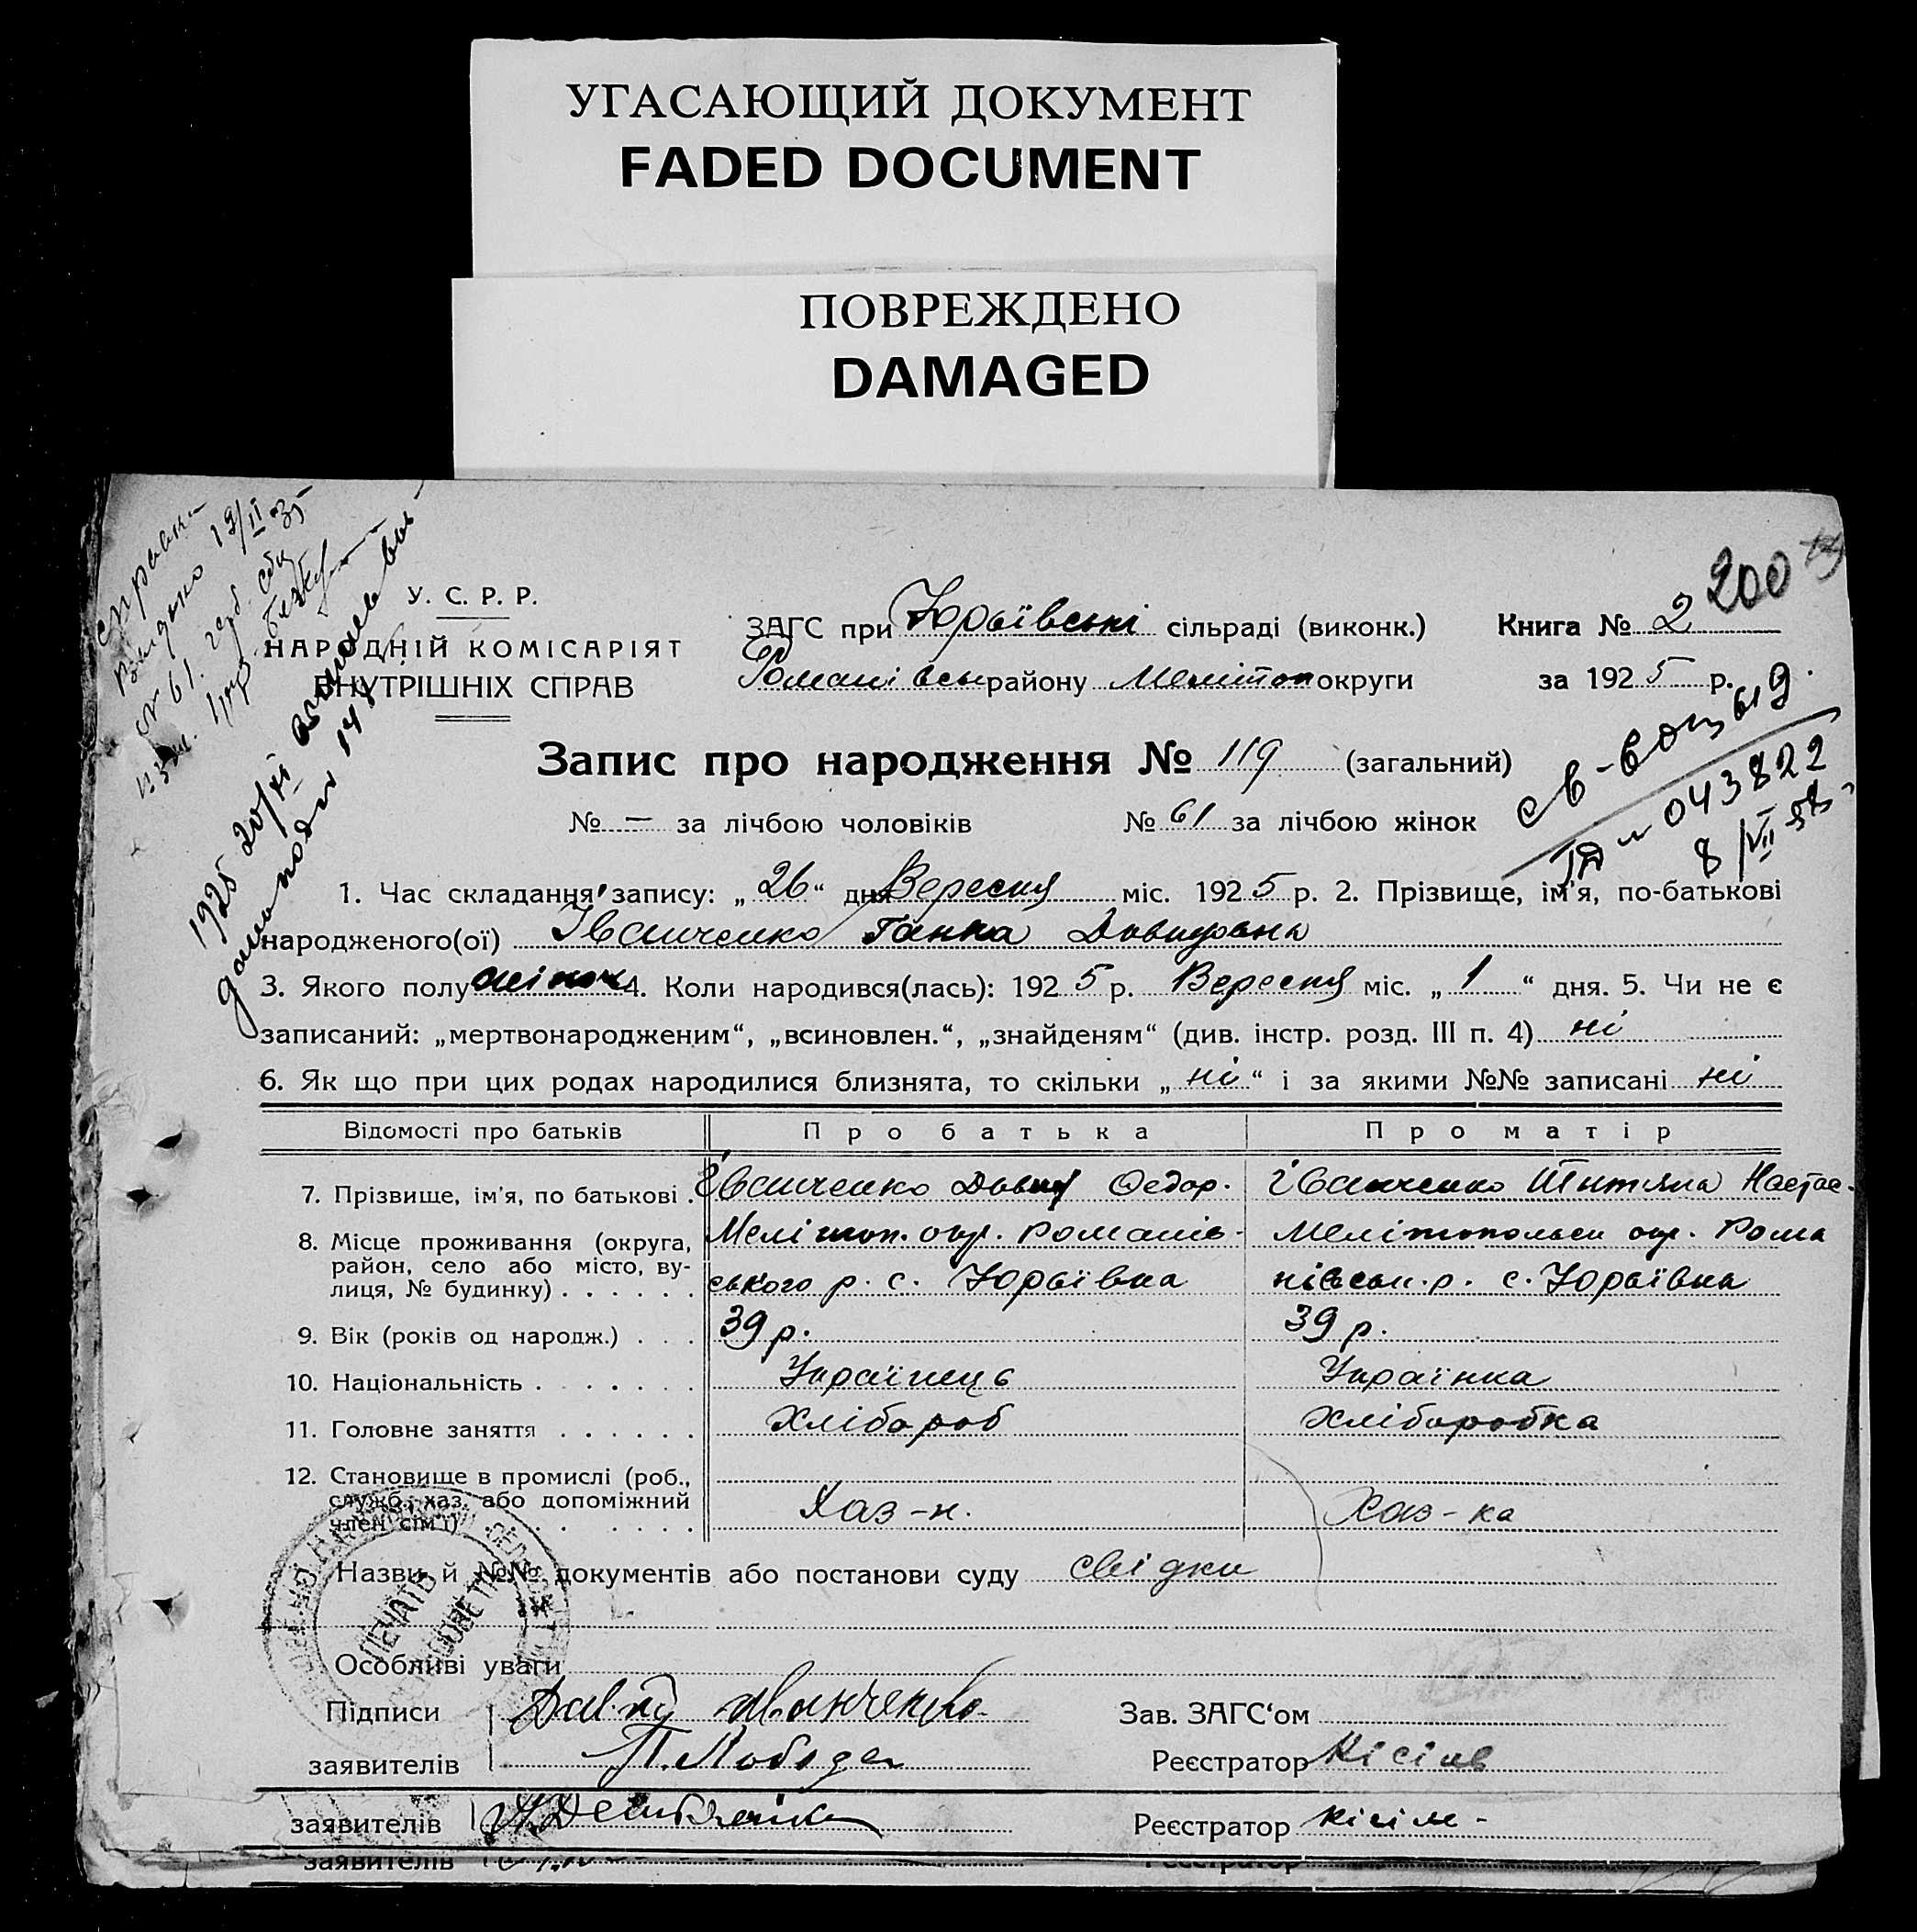 УГАСАЮЩИЙ ДОКУМЕНТ
FADED DOCUMENT
ПОВРЕЖДЕНО
DAMAGED
200
У. С. Р. Р.
НАРОДНІЙ КОМІСАРІЯТ
ВНУТРІШНІХ СПРАВ
ЗАГС при Юріївські сільраді (виконк.) Книга № 2
Романівськ району Мелітоп округи за 1925 р.
Запис про народження № 119 (загальний)
№ — за лічбою чоловіків № 61 за лічбою жінок
ІА № 043822
8/VII
1. Час складання запису: „26“ дня Вересня міс. 1925 р. 2. Прізвище, ім'я, по-батькові
народженого(ої) Іванченко Ганна Давидовна
3. Якого полу жіноч 4. Коли народився(лась): 1925 р. Вересня міс. „1“ дня. 5. Чи не є
записаний: „мертвонародженим“, „всиновлен.“, „знайденям“ (див. інстр. розд. III п. 4) ні
6. Як що при цих родах народилися близнята, то скільки „ні“ і за якими №№ записані ні
Відомості про батьків Про батька Про матір
7. Прізвище, ім'я, по батькові . Іванченко Давид Федор. Іванченко Настас.
8. Місце проживання (округа, Мелітоп. окр. Романів- Мелітопольськ окр. Рома
район, село або місто, ву-
лиця, № будинку) . . . . . . ського р. с. Юріївка нівськ. р. с. Юріївка
9. Вік (років од народж.) . . . 39 р. 39 р.
10. Національність . . . . . . . Українець Українка
11. Головне заняття . . . . . . Хлібороб Хліборобка
12. Становище в промислі (роб.,
служб., хаз. або допоміжний
член сім'ї) . . . . . . Хаз-н. Хаз-ка
Назви й №№ документів або постанови суду свідки
ПЕЧАТЬ
Особливі уваги
Підписи Давид Іванченко Зав. ЗАГС‘ом
заявителів Реєстратор
заявителів Реєстратор
заявителів Реєстратор